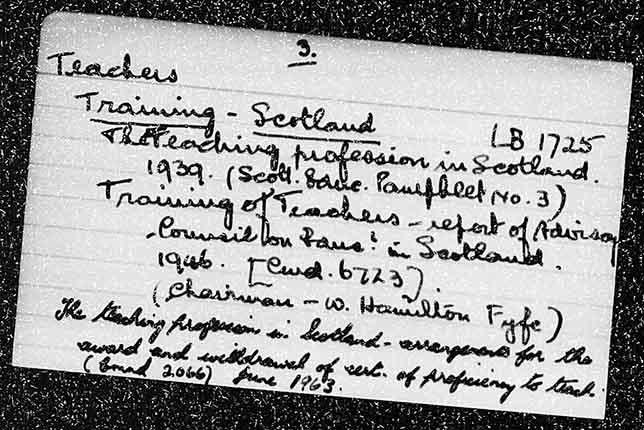 3.
Teachers
Training - Scotland
LB 1725
The teaching profession in Scotland.
1939. (Scott. Educ. Pamphlet No. 3)
Training of Teachers - report of Advisory
Council on Educ? in Scotland.
1946. [Cmd. 6723].
(Chairman - W. Hamilton Fyfe)
The teaching profession in Scotland - arrangements for the
award and withdrawal of cert. of proficiency to teach.
(Cmnd 2066) June 1963.